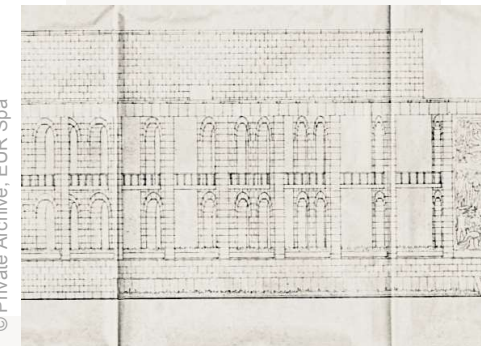 © Private Archive, EUR Spa